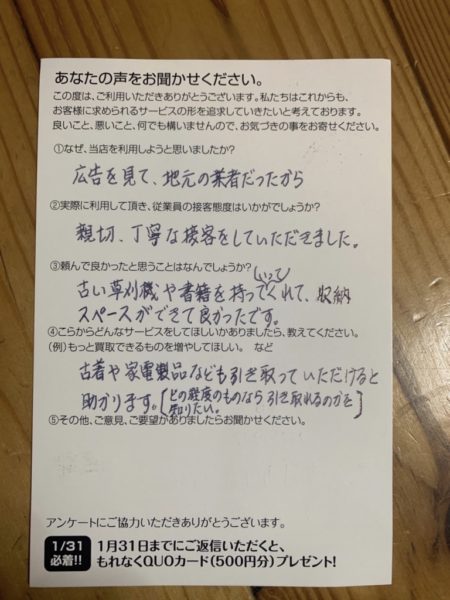 あなたの声をお聞かせください。
この度は、ご利用いただきありがとうございます。私たちはこれからも、
お客様に求められるサービスの形を追求していきたいと考えております。
良いこと、悪いこと、何でも構いませんので、お気づきの事をお寄せください。
①なぜ、当店を利用しようと思いましたか?
広告を見て、地元の業者だったから
②実際に利用して頂き、従業員の接客態度はいかがでしょうか?
親切、丁寧な接客をしていただきました。
③頼んで良かったと思うことはなんでしょうか?
古い草刈機や書籍を持っていってくれて、収納
スペースができて良かったです。
④こらからどんなサービスをしてほしいかありましたら、教えてください。
(例)もっと買取できるものを増やしてほしい。 など
古着や家電製品なども引き取っていただけると
助かります。[どの程度のものなら引き取れるのかを
知りたい。]
⑤その他、ご意見、ご要望がありましたらお聞かせください。
アンケートにご協力いただきありがとうございます。
1/31
必着!!
1月31日までにご返信いただくと、
もれなくQUOカード(500円分)プレゼント!